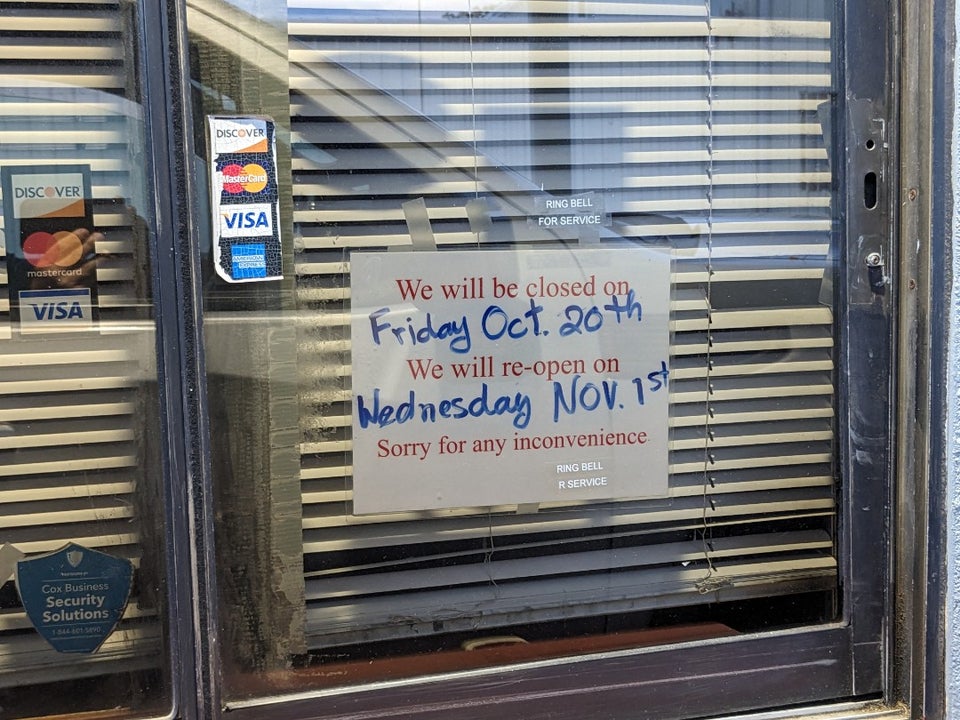 DISCOVER
mastercard
VISA
DISCOVER
MasterCard
VISA
AMERICAN
EXPRESS
RING BELL
FOR SERVICE
We will be closed on
Friday Oct. 20th
We will re-open on
Wednesday NOV. 1st
Sorry for any inconvenience
RING BELL
R SERVICE
Cox Business
Security
Solutions